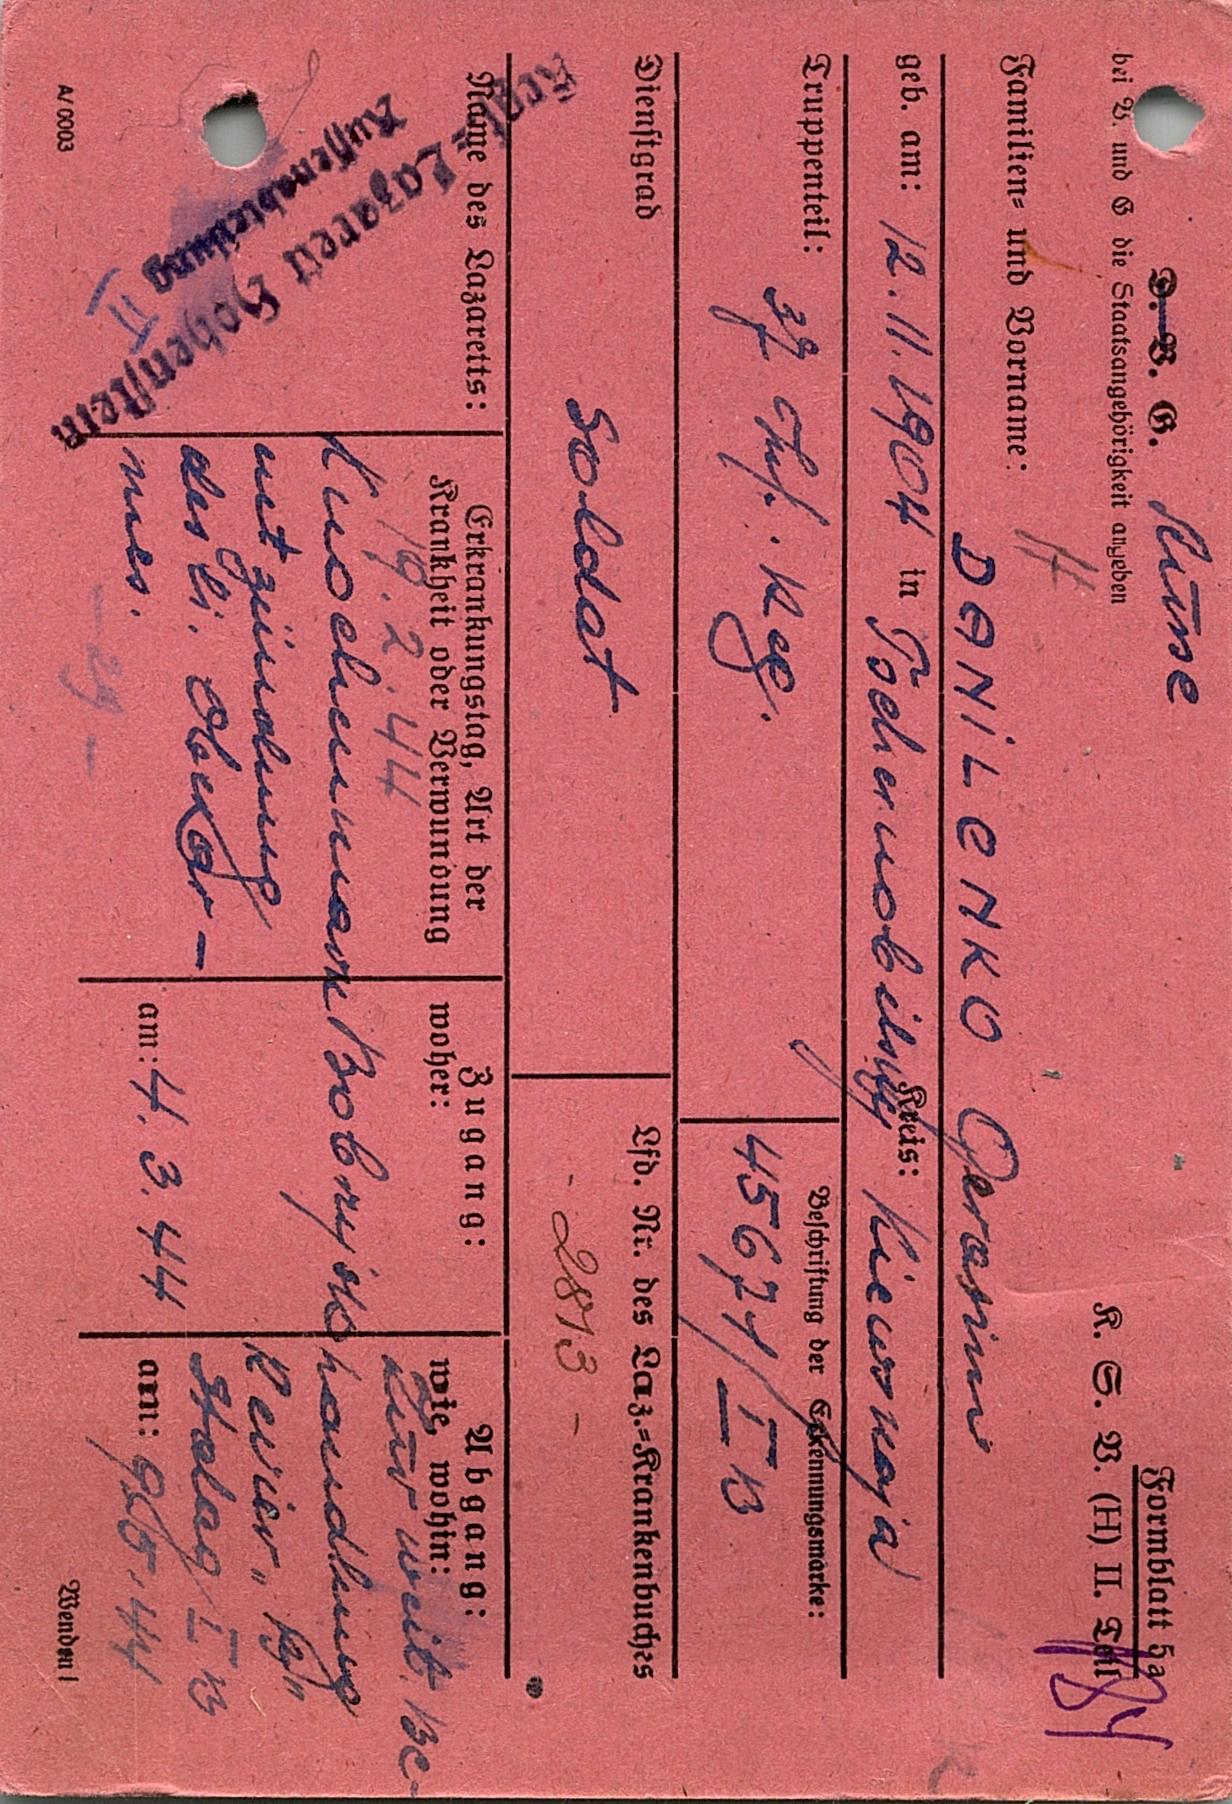 Formblatt 5a
K. S. B. (H) II. Teil
D. B. G. Russe
bei B. und G die Staatsangehörigkeit angeben
Familien- und Vorname:
DANILENKO Gerasim
geb. am: 12.11.1904 in Kreis: Kiewskaja
Truppenteil: 37 Inf. Reg.
Beschriftung der Erkennungsmarke:
45671/IB
Dienstgrad
Soldat
Lfd. Nr. des Laz.=Krankenbuches
- 2813 -
Name des Lazaretts:
Krgf.-Lazarett Hohenstein
Russenabteilung II
Erkrankungstag, Art der
Krankheit oder Verwundung
19.2.44
Knochenmark
entzündung
des li. Oberar-
mes.
Zugang:
woher:
Bobrujsk
am: 4.3.44
Abgang:
wie, wohin:
Zur weit. Be-
handlung
Revier
Stalag IB
am:
A/0003
Wenden!